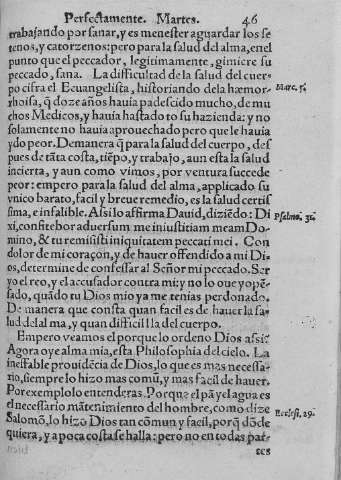 Perfectamente. Martes. 46
trabajando por sanar, y es menester aguardar los se
tenos, y catorzenos: pero para la salud del alma, en el
punto que el peccador, legitimamente, gimiere su
peccado, sana. La difficultad de la salud del cuer
po cifra el Euangelista, historiando dela hæmor-
rhoisa, q̃ doze años hauia padescido mucho, de mu
chos Medicos, y hauia gastado to su hazienda: y no
solamente no hauia aprouechado pero que le hauia
ydo peor. Demanera q̃ para la salud del cuerpo, des
pues de tãta costa, tiẽpo, y trabajo, aun esta la salud
incierta, y aun como vimos, por ventura succede
peor: empero para la salud del alma, applicado su
vnico barato, facil y breue remedio, es la salud certis
sima, e infalible. Assi lo affirma Dauid, diziẽdo: Di
xi, confitebor aduersum me iniustitiam meam Do-
mino, & tu remisisti iniquitatem peccati mei. Con
dolor de mi coraçon, y de hauer offendido a mi Di-
os, determine de confessar al Señor mi peccado. Ser
yo el reo, y el accusador contra mi: y no lo que yo pẽ-
sado, quãdo tu Dios mio ya me tenias perdonado.
De manera que consta quan facil es de hauer la sa-
lud del alma, y quan difficil la del cuerpo.
Empero veamos el porque lo ordeno Dios assi:
Agora oye alma mia, esta Philosophia del cielo. La
ineffable prouidẽcia de Dios, lo que es mas necessa-
rio, siempre lo hizo mas comũ, y mas facil de hauer.
Por exemplo lo entenderas. Porque el pã y el agua es
el necessario mãtenimiento del hombre, como dize
Salomõ, lo hizo Dios tan cõmun y facil, porq̃ dõde
quiera, y a poca costa se halla: pero no en todas par-
tes
Marc. 5.
Psalmo. 31.
Ecclesi. 29.